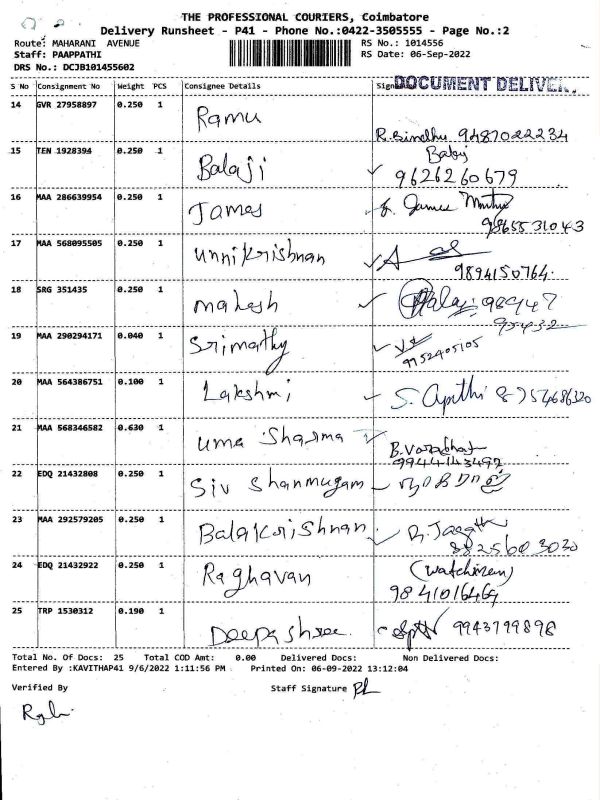 THE PROFESSIONAL COURIERS, Coimbatore
Delivery Runsheet - P41 - Phone No.:0422-3505555 - Page No.:2
Route: MAHARANI AVENUE RS No.: 1014556
Staff: PAAPPATHI RS Date: 06-Sep-2022
DRS No.: DCJB101455602
S No Consignment No Weight PCS Consignee Details Sign DOCUMENT DELIVE
14 GVR 27958897 0.250 1 Ramu
R.Sindhu 9487022234
15 TEN 1928394 0.250 1 Balaji Baby
9626260679
16 MAA 286639954 0.250 1 James James
9865531043
17 MAA 568095505 0.250 1 Unnikrishnan
9894150764
18 SRG 351435 0.250 1 Mahesh 98947
95432
19 MAA 290294171 0.040 1 Srimathy
9952405105
20 MAA 564386751 0.100 1 Lakshmi 8754686320
21 MAA 568346582 0.630 1 Uma Sharma
9944143492
22 EDQ 21432808 0.250 1 Siv Shanmugam
23 MAA 292579205 0.250 1 Balakrishnan
8825603030
24 EDQ 21432922 0.250 1 Raghavan (watchmen)
9841016469
25 TRP 1530312 0.190 1 Deepashree 9943799898
Total No. Of Docs: 25 Total COD Amt: 0.00 Delivered Docs: Non Delivered Docs:
Entered By :KAVITHAP41 9/6/2022 1:11:56 PM Printed On: 06-09-2022 13:12:04
Verified By Staff Signature